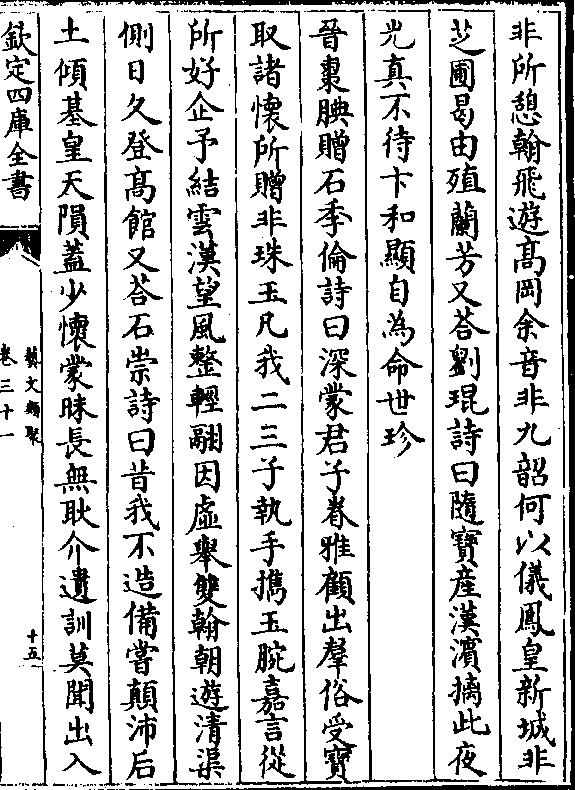 非所憩翰飛遊髙岡余音非九韶何以儀鳳皇新城非
芝圃曷由殖蘭芳又荅劉琨詩曰隨寶産漢濵摛此夜
光真不待卞和顯自為命世珍
晉棗腆贈石季倫詩曰深蒙君子眷雅顧出羣俗受寶
取諸懷所贈非珠玉凡我二三子執手擕玉腕嘉言從
所好企予結雲漢望風整輕翮因虛舉雙翰朝遊清渠
側日夕登髙館又荅石崇詩曰昔我不造備嘗顛沛后
土傾基皇天隕蓋少懷蒙昧長無耿介遺訓莫聞出入
欽定四庫全書
藝文類聚
卷三十一
十五